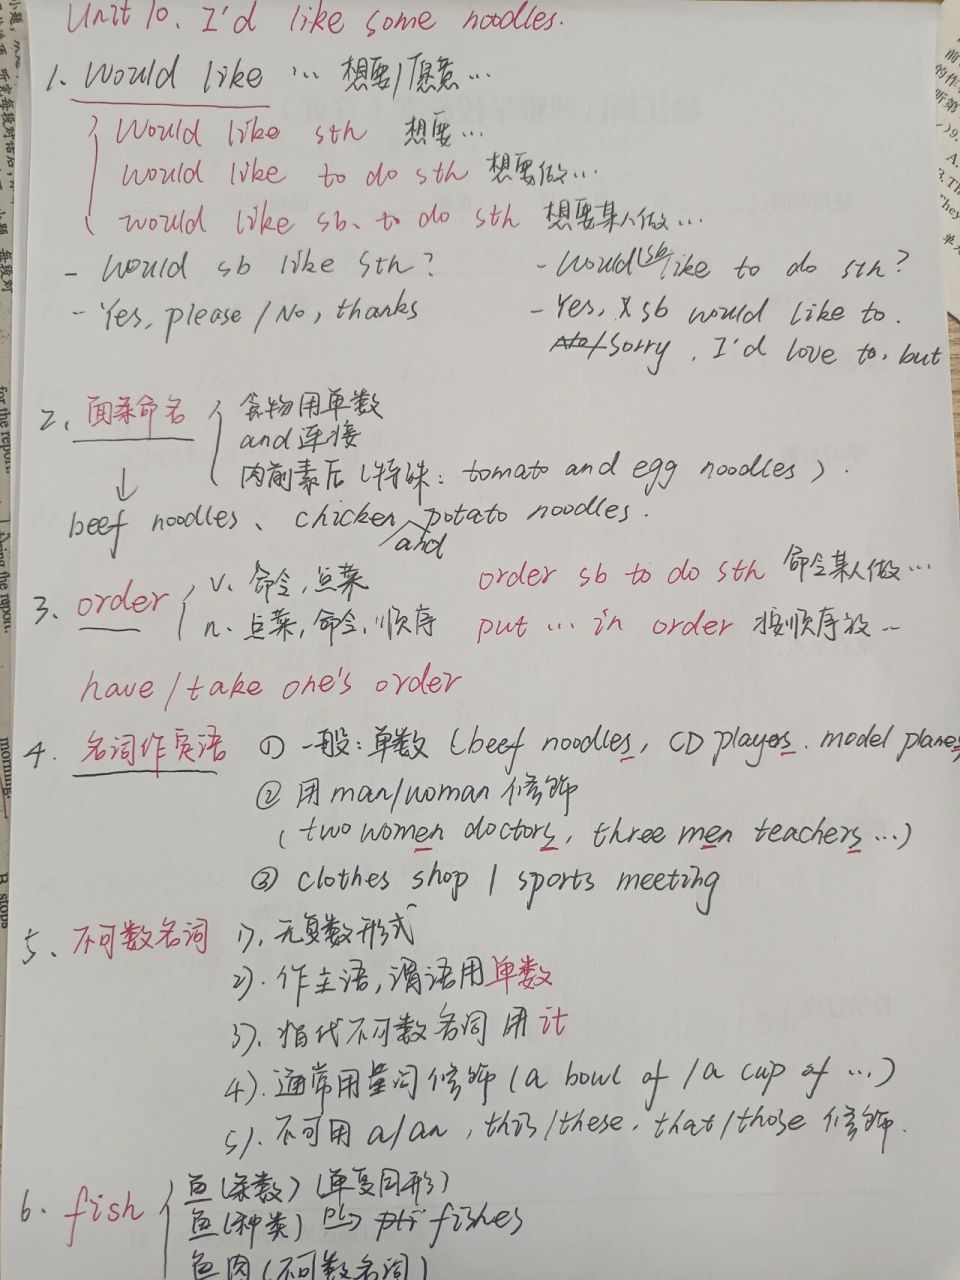 Unit 10. I'd like some noodles.
1. Would like … 想要/愿意…
Would like sth 想要…
would like to do sth 想要做…
would like sb. to do sth 想要某人做…
- Would sb like sth?
- Yes, please / No, thanks
- Would sb like to do sth?
- Yes, sb would like to.
Sorry, I'd love to, but
2、面条命名
食物用单数
and 连接
肉前素后(特殊: tomato and egg noodles).
↓
beef noodles、chicken and potato noodles.
3. order
v. 命令,点菜
n. 点菜,命令,顺序
order sb to do sth 命令某人做…
put … in order 按顺序放…
have/take one's order
4. 名词作英语
① 一般:单数 (beef noodles, CD players. model planes
② 用 man/woman 修饰
(two women doctors, three men teachers …)
③ clothes shop / sports meeting
5、不可数名词
1). 无复数形式
2). 作主语,谓语用单数
3). 指代不可数名词用 it
4). 通常用量词修饰 (a bowl of / a cup of …)
5). 不可用 a/an, this/these, that/those 修饰.
6. fish
鱼(条数)(单复同形)
鱼(种类) fishes
鱼肉(不可数名词)
for the report.
morning.